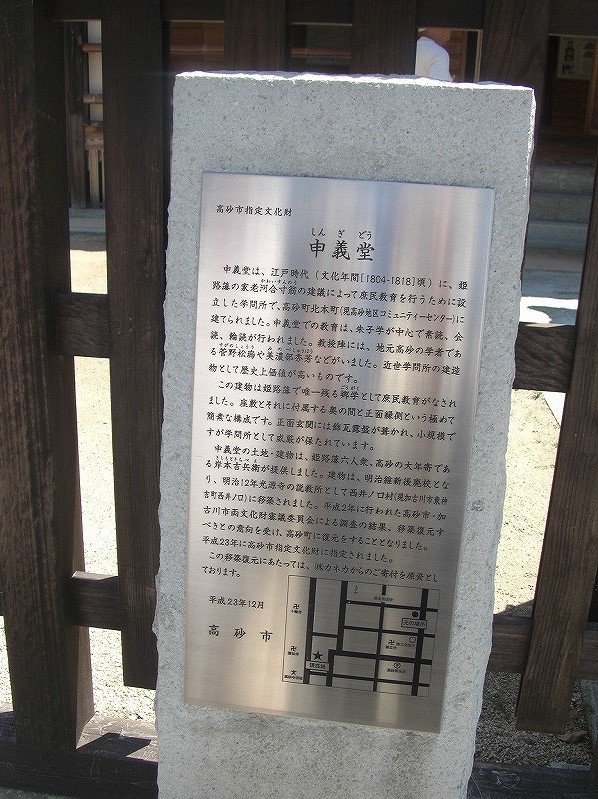 高砂市指定文化財
しんぎどう
申義堂
申義堂は、江戸時代(文化年間[1804-1818]頃)に、姫
路藩の家老河合寸翁の建議によって庶民教育を行うために設
立した学問所で、高砂町北本町(現高砂地区コミュニティーセンター)に
建てられました。申義堂での教育は、朱子学が中心で素読、会
読、輪読が行われました。教授陣には、地元高砂の学者であ
る菅野松塢や美濃部芥芳などがいました。近世学問所の建造
物として歴史上価値が高いものです。
この建物は姫路藩で唯一残る郷学として庶民教育がなされ
ました。座敷とそれに付属する奥の間と正面縁側という極めて
簡素な構成です。正面玄関には飾瓦露盤が葺かれ、小規模で
すが学問所として威厳が保たれています。
申義堂の土地・建物は、姫路藩六人衆、高砂の大年寄であ
る岸本吉兵衛が提供しました。建物は、明治維新後廃校とな
り、明治12年光源寺の説教所として西井ノ口村(現加古川市東神
吉町西井ノ口)に移築されました。平成2年に行われた高砂市・加
古川市両文化財審議委員会による調査の結果、移築復元す
べきとの意向を受け、高砂町に復元をすることとなりました。
平成23年に高砂市指定文化財に指定されました。
この移築復元にあたっては、㈱カネカからのご寄付を原資とし
ております。
平成23年12月
高砂市
元の場所
現在地